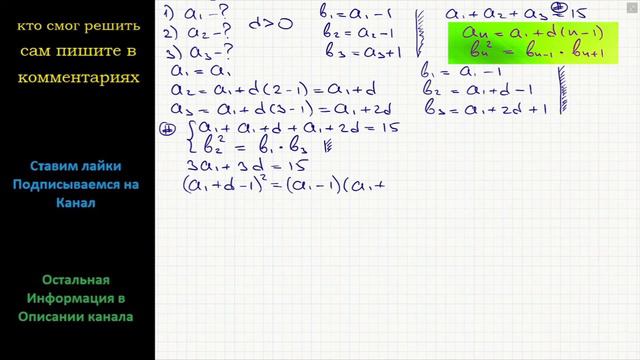 кто смог решить
сам пишите в
комментариях
Ставим лайки
Подписываемся на
Канал
Остальная
Информация в
Описании канала
1) a₁ - ? d > 0 b₁ = a₁ - 1 a₁ + a₂ + a₃ = 15
2) a₂ - ? b₂ = a₂ - 1 aₙ = a₁ + d(n-1)
3) a₃ - ? b₃ = a₃ + 1 bₙ² = bₙ₋₁ · bₙ₊₁
a₁ = a₁ b₁ = a₁ - 1
a₂ = a₁ + d(2-1) = a₁ + d b₂ = a₁ + d - 1
a₃ = a₁ + d(3-1) = a₁ + 2d b₃ = a₁ + 2d + 1
{ a₁ + a₁ + d + a₁ + 2d = 15
b₂² = b₁ · b₃
3a₁ + 3d = 15
(a₁ + d - 1)² = (a₁ - 1)(a₁ +